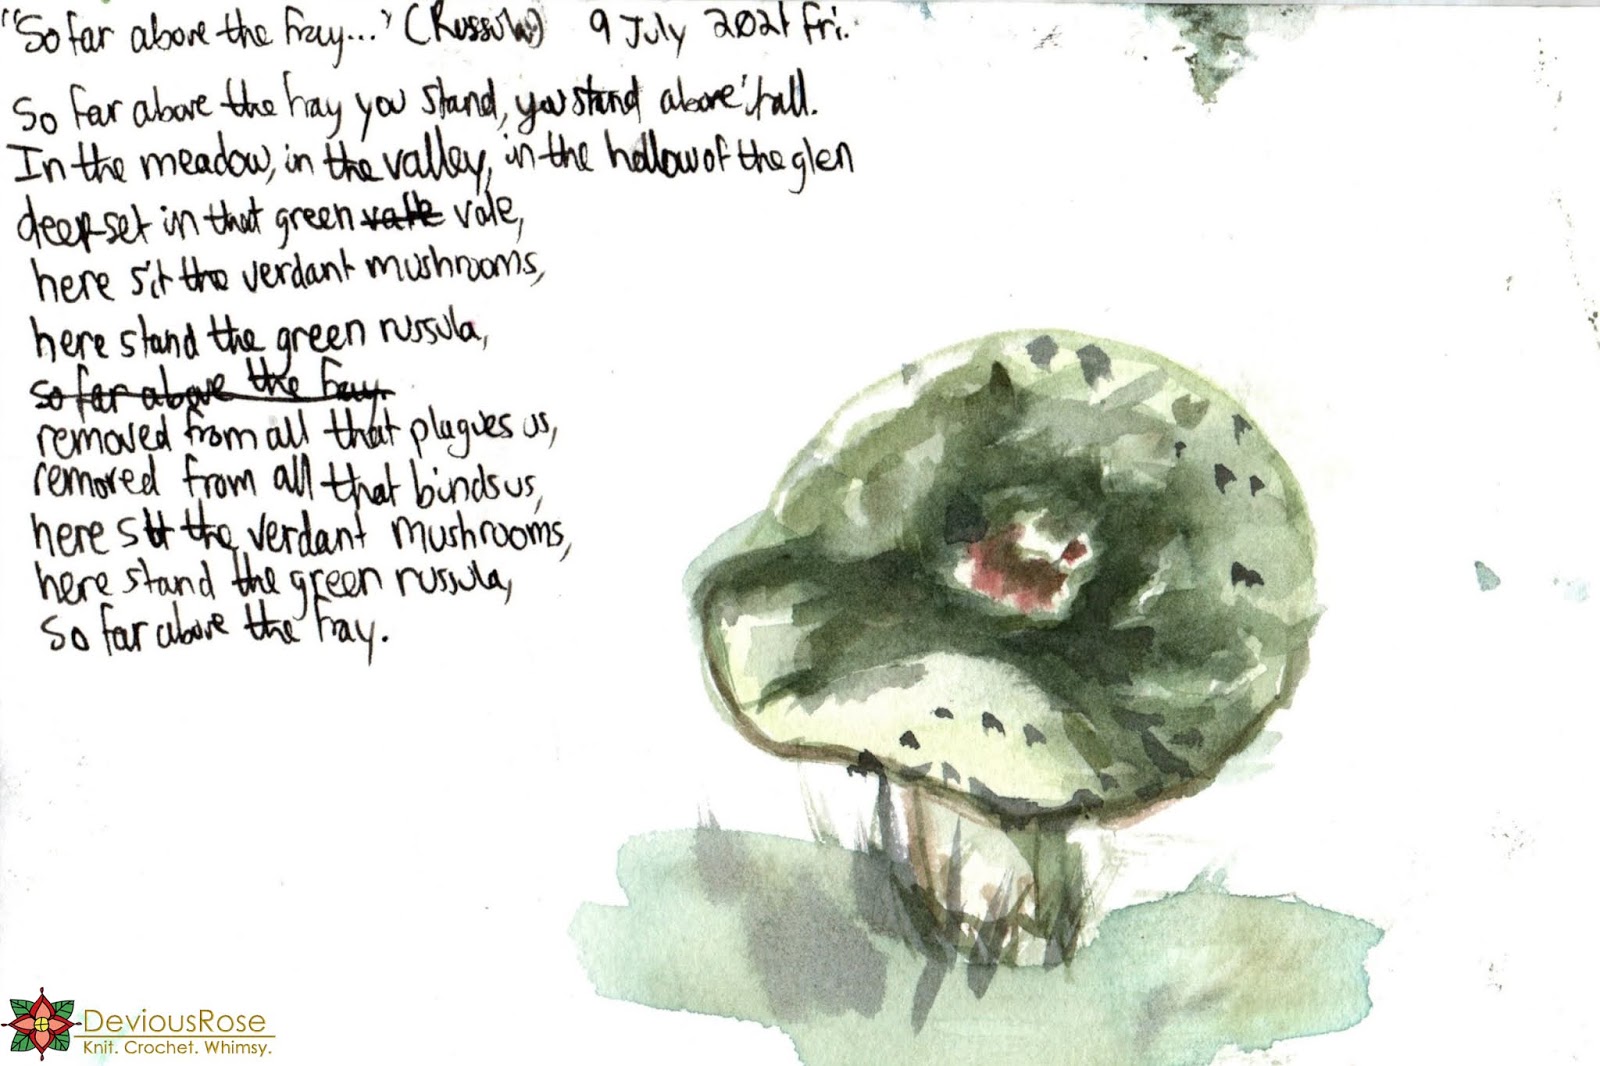 "So far above the fray..." (Russula) 9 July 2021 Fri.
So far above the fray you stand, you stand above it all.
In the meadow, in the valley, in the hollow of the glen
deep-set in that green vale vale,
here sit the verdant mushrooms,
here stand the green russula,
so far above the fray.
removed from all that plagues us,
removed from all that binds us,
here sit the verdant mushrooms,
here stand the green russula,
so far above the fray.
DeviousRose
Knit. Crochet. Whimsy.